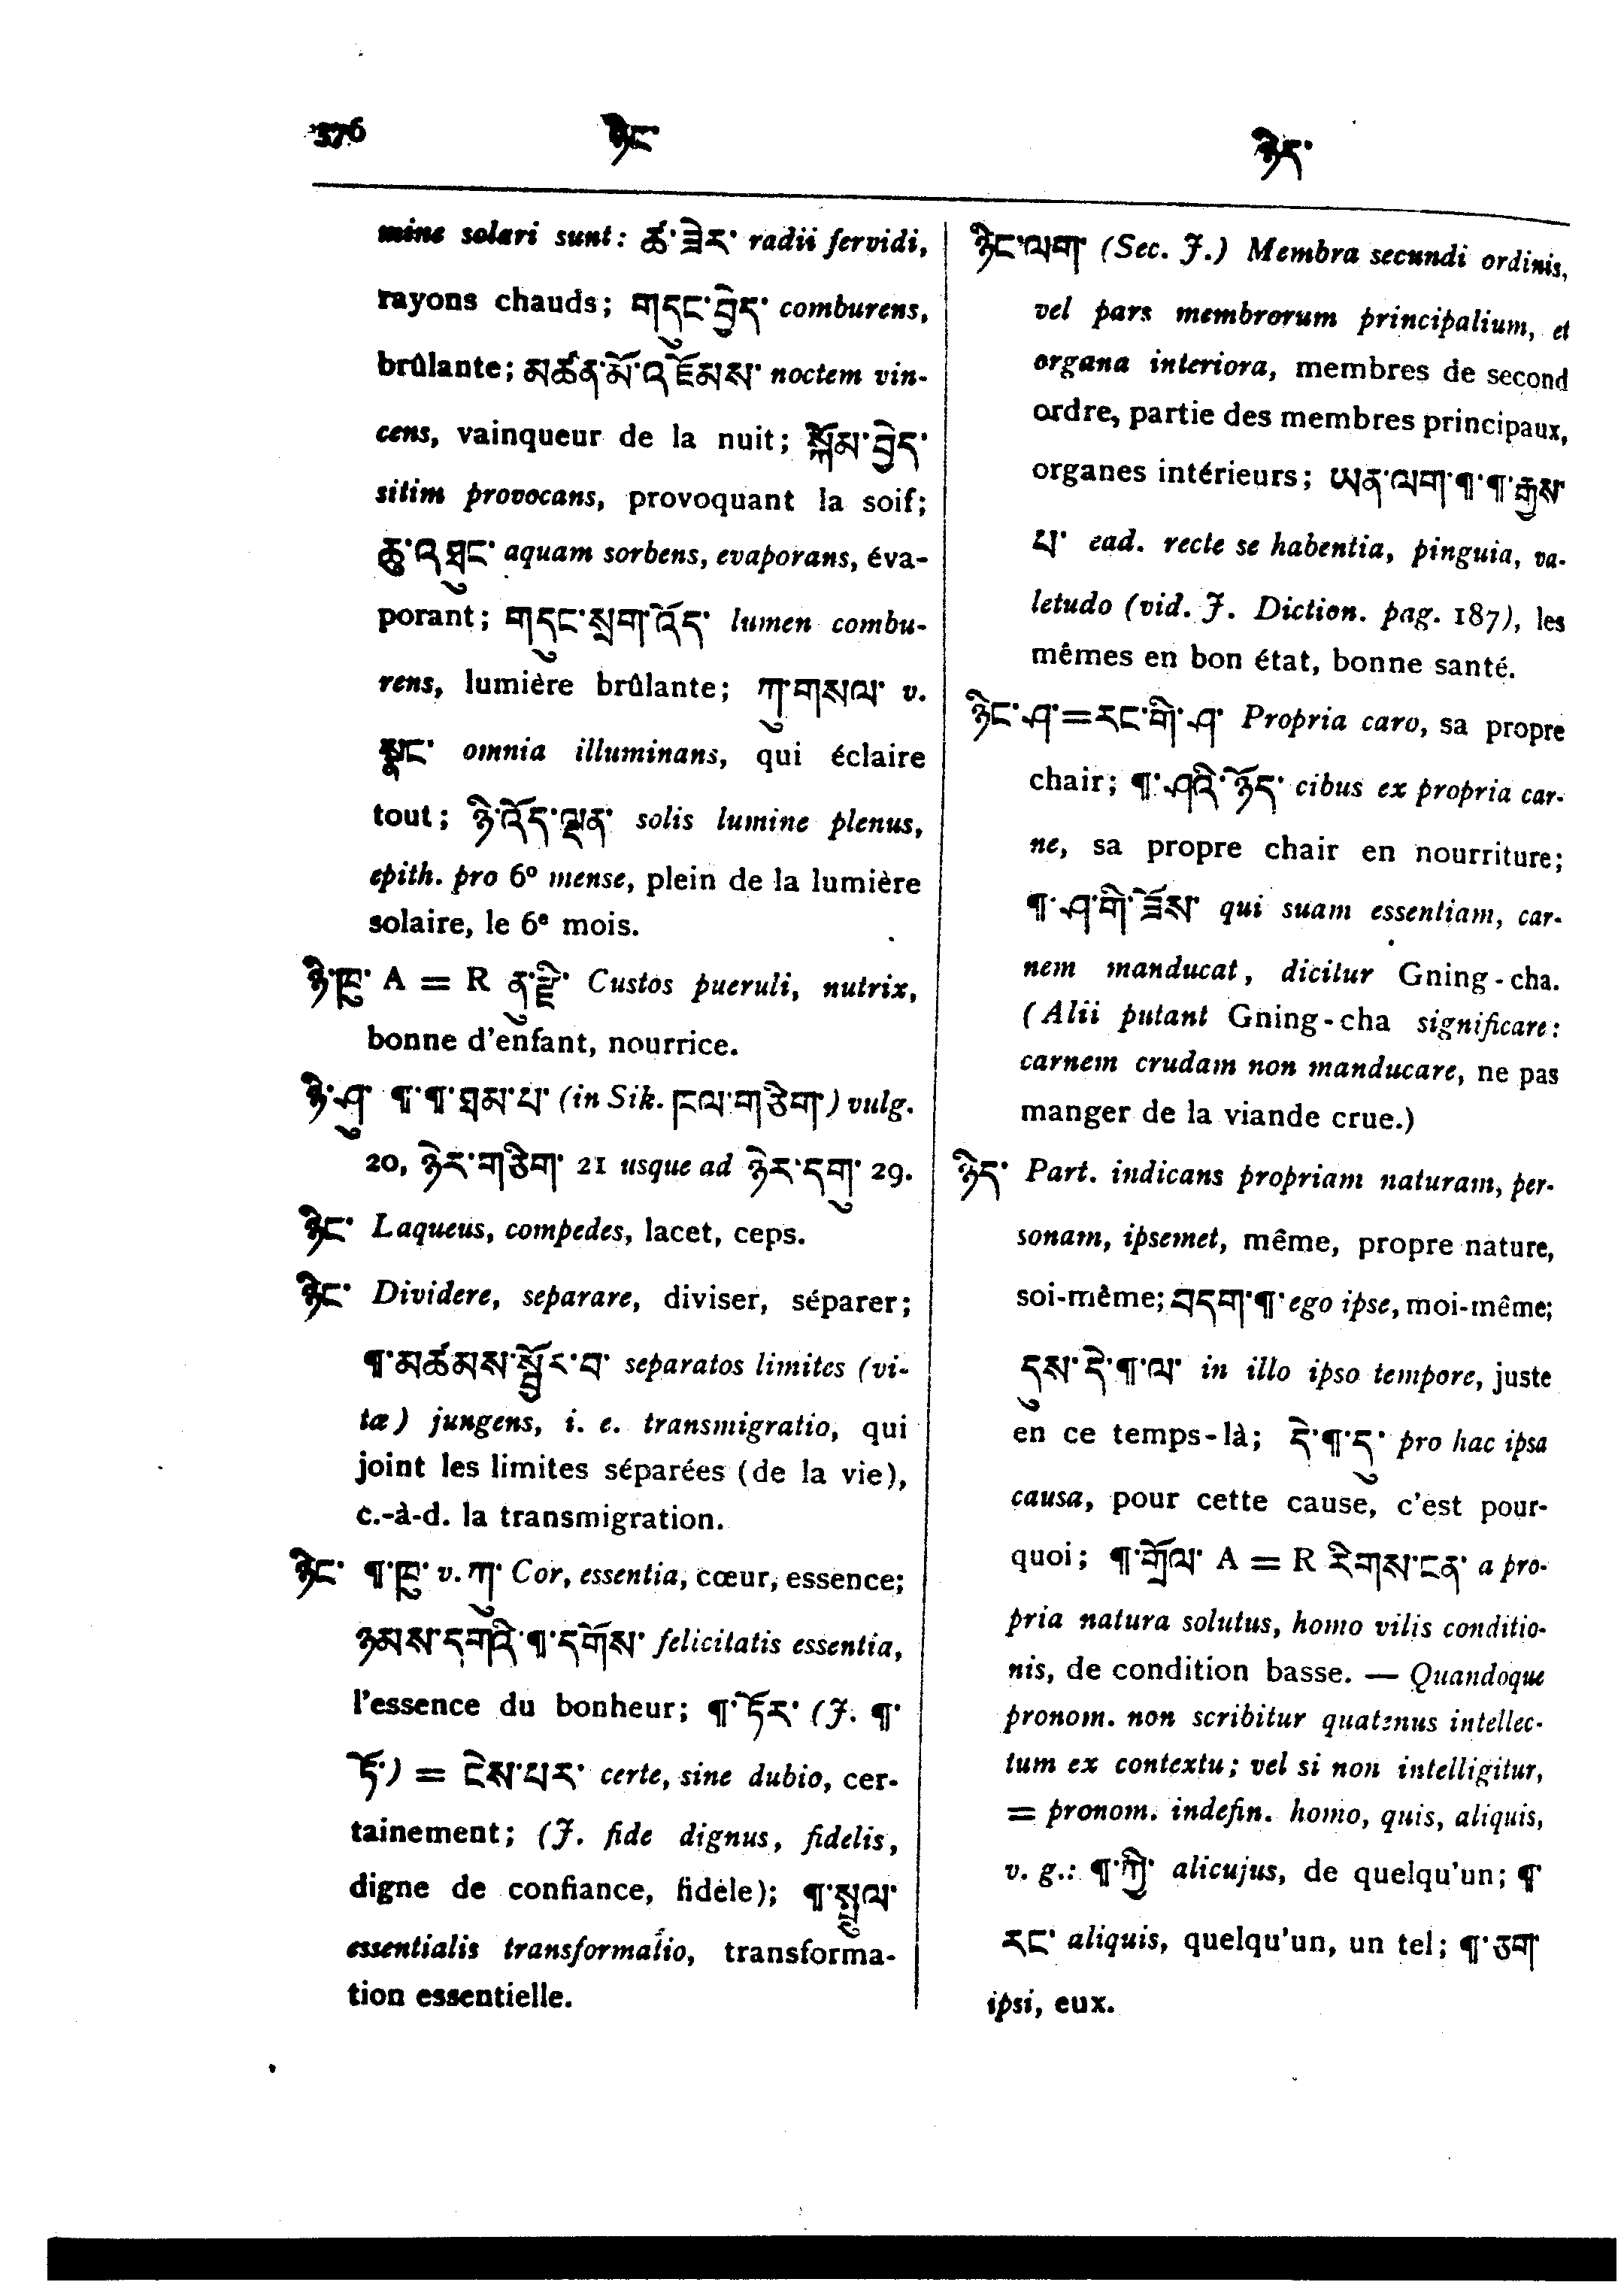 376 ཉིང་ ཉིད་
mine solari sunt: ཚ་ཟེར་ radii fervidi,
rayons chauds; གདུང་བྱེད་ comburens,
brûlante; མཚན་མོ་འཇོམས་ noctem vin-
cens, vainqueur de la nuit; སྐོམ་བྱེད་
sitim provocans, provoquant la soif;
ཆུ་འཐུང་ aquam sorbens, evaporans, éva-
porant; གདུང་སྲག་འོད་ lumen combu-
rens, lumière brûlante; ཀུ་གསལ་ v.
སྣང་ omnia illuminans, qui éclaire
tout; ཉི་འོད་ལྡན་ solis lumine plenus,
epith. pro 6º mense, plein de la lumière
solaire, le 6e mois.
ཉི་ཁྲ་ A = R ནུ་རྫི་ Custos pueruli, nutrix,
bonne d'enfant, nourrice.
ཉི་ཤུ ¶་¶་ཐམ་པ་ (in Sik. ངལ་གཅིག་) vulg.
20, ཉེར་གཅིག་ 21 usque ad ཉེར་དགུ་ 29.
ཉིང་ Laqueus, compedes, lacet, ceps.
ཉིང་ Dividere, separare, diviser, séparer;
¶་མཚམས་སྦྱོར་བ་ separatos limites (vi-
tæ) jungens, i. e. transmigratio, qui
joint les limites séparées (de la vie),
c.-à-d. la transmigration.
ཉིང་ ¶་ཁུ་ v. ཀུ་ Cor, essentia, cœur, essence;
ཉམས་དགའི་¶་དགོས་ felicitatis essentia,
l'essence du bonheur; ¶་ཏོར་ (J. ¶་
ཏོ་) = ངེས་པར་ certe, sine dubio, cer-
tainement; (J. fide dignus, fidelis,
digne de confiance, fidèle); ¶་སྤྲུལ་
essentialis transformatio, transforma-
tion essentielle.
ཉིང་ལག་ (Sec. J.) Membra secundi ordinis,
vel pars membrorum principalium, et
organa interiora, membres de second
ordre, partie des membres principaux,
organes intérieurs; ཡན་ལག་¶་¶་རྒྱས་
པ་ ead. recte se habentia, pinguia, va-
letudo (vid. J. Diction. pag. 187), les
mêmes en bon état, bonne santé.
ཉིང་ཤ་=རང་གི་ཤ་ Propria caro, sa propre
chair; ¶་ཤའི་ཉོད་ cibus ex propria car-
ne, sa propre chair en nourriture;
¶་ཤ་གི་ཟོས་ qui suam essentiam, car-
nem manducat, dicitur Gning-cha.
(Alii putant Gning-cha significare:
carnem crudam non manducare, ne pas
manger de la viande crue.)
ཉིད་ Part. indicans propriam naturam, per-
sonam, ipsemet, même, propre nature,
soi-même; བདག་¶་ ego ipse, moi-même;
དུས་དེ་¶་ལ་ in illo ipso tempore, juste
en ce temps-là; དེ་¶་དུ་ pro hac ipsa
causa, pour cette cause, c'est pour-
quoi; ¶་གྲོལ་ A = R རིགས་ངན་ a pro-
pria natura solutus, homo vilis conditio-
nis, de condition basse. — Quandoque
pronom. non scribitur quatenus intellec-
tum ex contextu; vel si non intelligitur,
= pronom. indefin. homo, quis, aliquis,
v. g.: ¶་ཀྱི་ alicujus, de quelqu'un; ¶་
རང་ aliquis, quelqu'un, un tel; ¶་ཅག་
ipsi, eux.